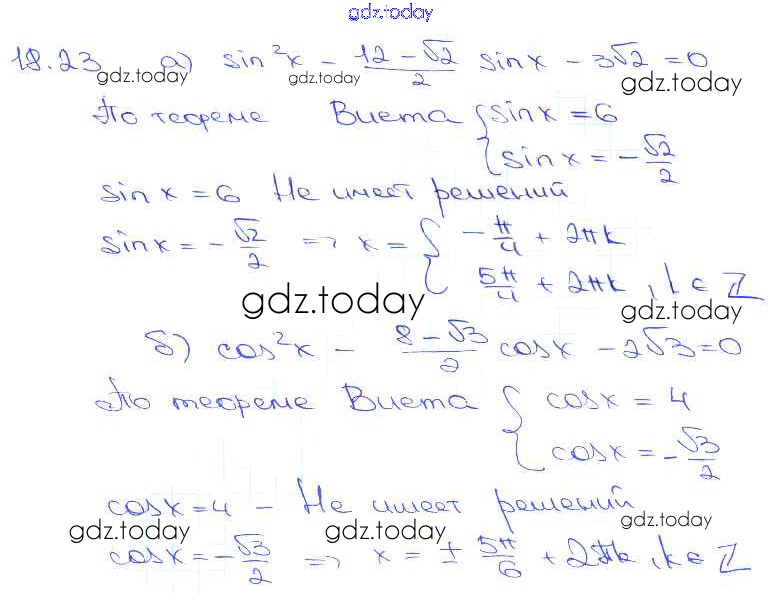 gdz.today
18.23 а) sin²x - (12-√2)/2 sinx - 3√2 = 0
gdz.today gdz.today gdz.today
По теореме Виета { sinx = 6
sinx = -√2/2
sinx = 6 Не имеет решений
sinx = -√2/2 => x = { -π/4 + 2πk
5π/4 + 2πk, k ∈ ℤ
gdz.today gdz.today
б) cos²x - (8-√3)/2 cosx - 2√3 = 0
По теореме Виета { cosx = 4
cosx = -√3/2
cosx = 4 - Не имеет решений
gdz.today gdz.today gdz.today
cosx = -√3/2 => x = ± 5π/6 + 2πk, k ∈ ℤ